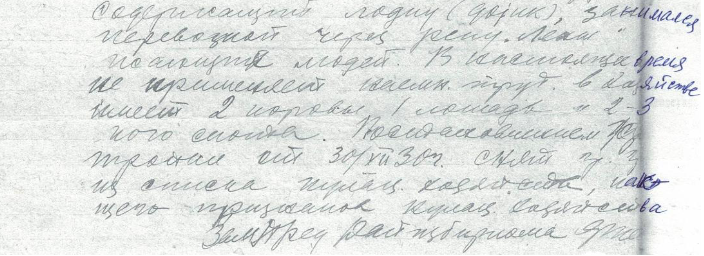 содержащий лодку (дощик), занимался
перевозкой через реку "Лена"
людей. В настоящ время
не применяет наемн. труд. в хозяйстве
имеет 2 коровы 1 лошадь и 2-3
ного скота. Постановлением
тройки от 30/VII 30 г. снят
из списка кулац. хозяйства, како
щего признаков кулац. хозяйства
Зам Пред Райизбиркома